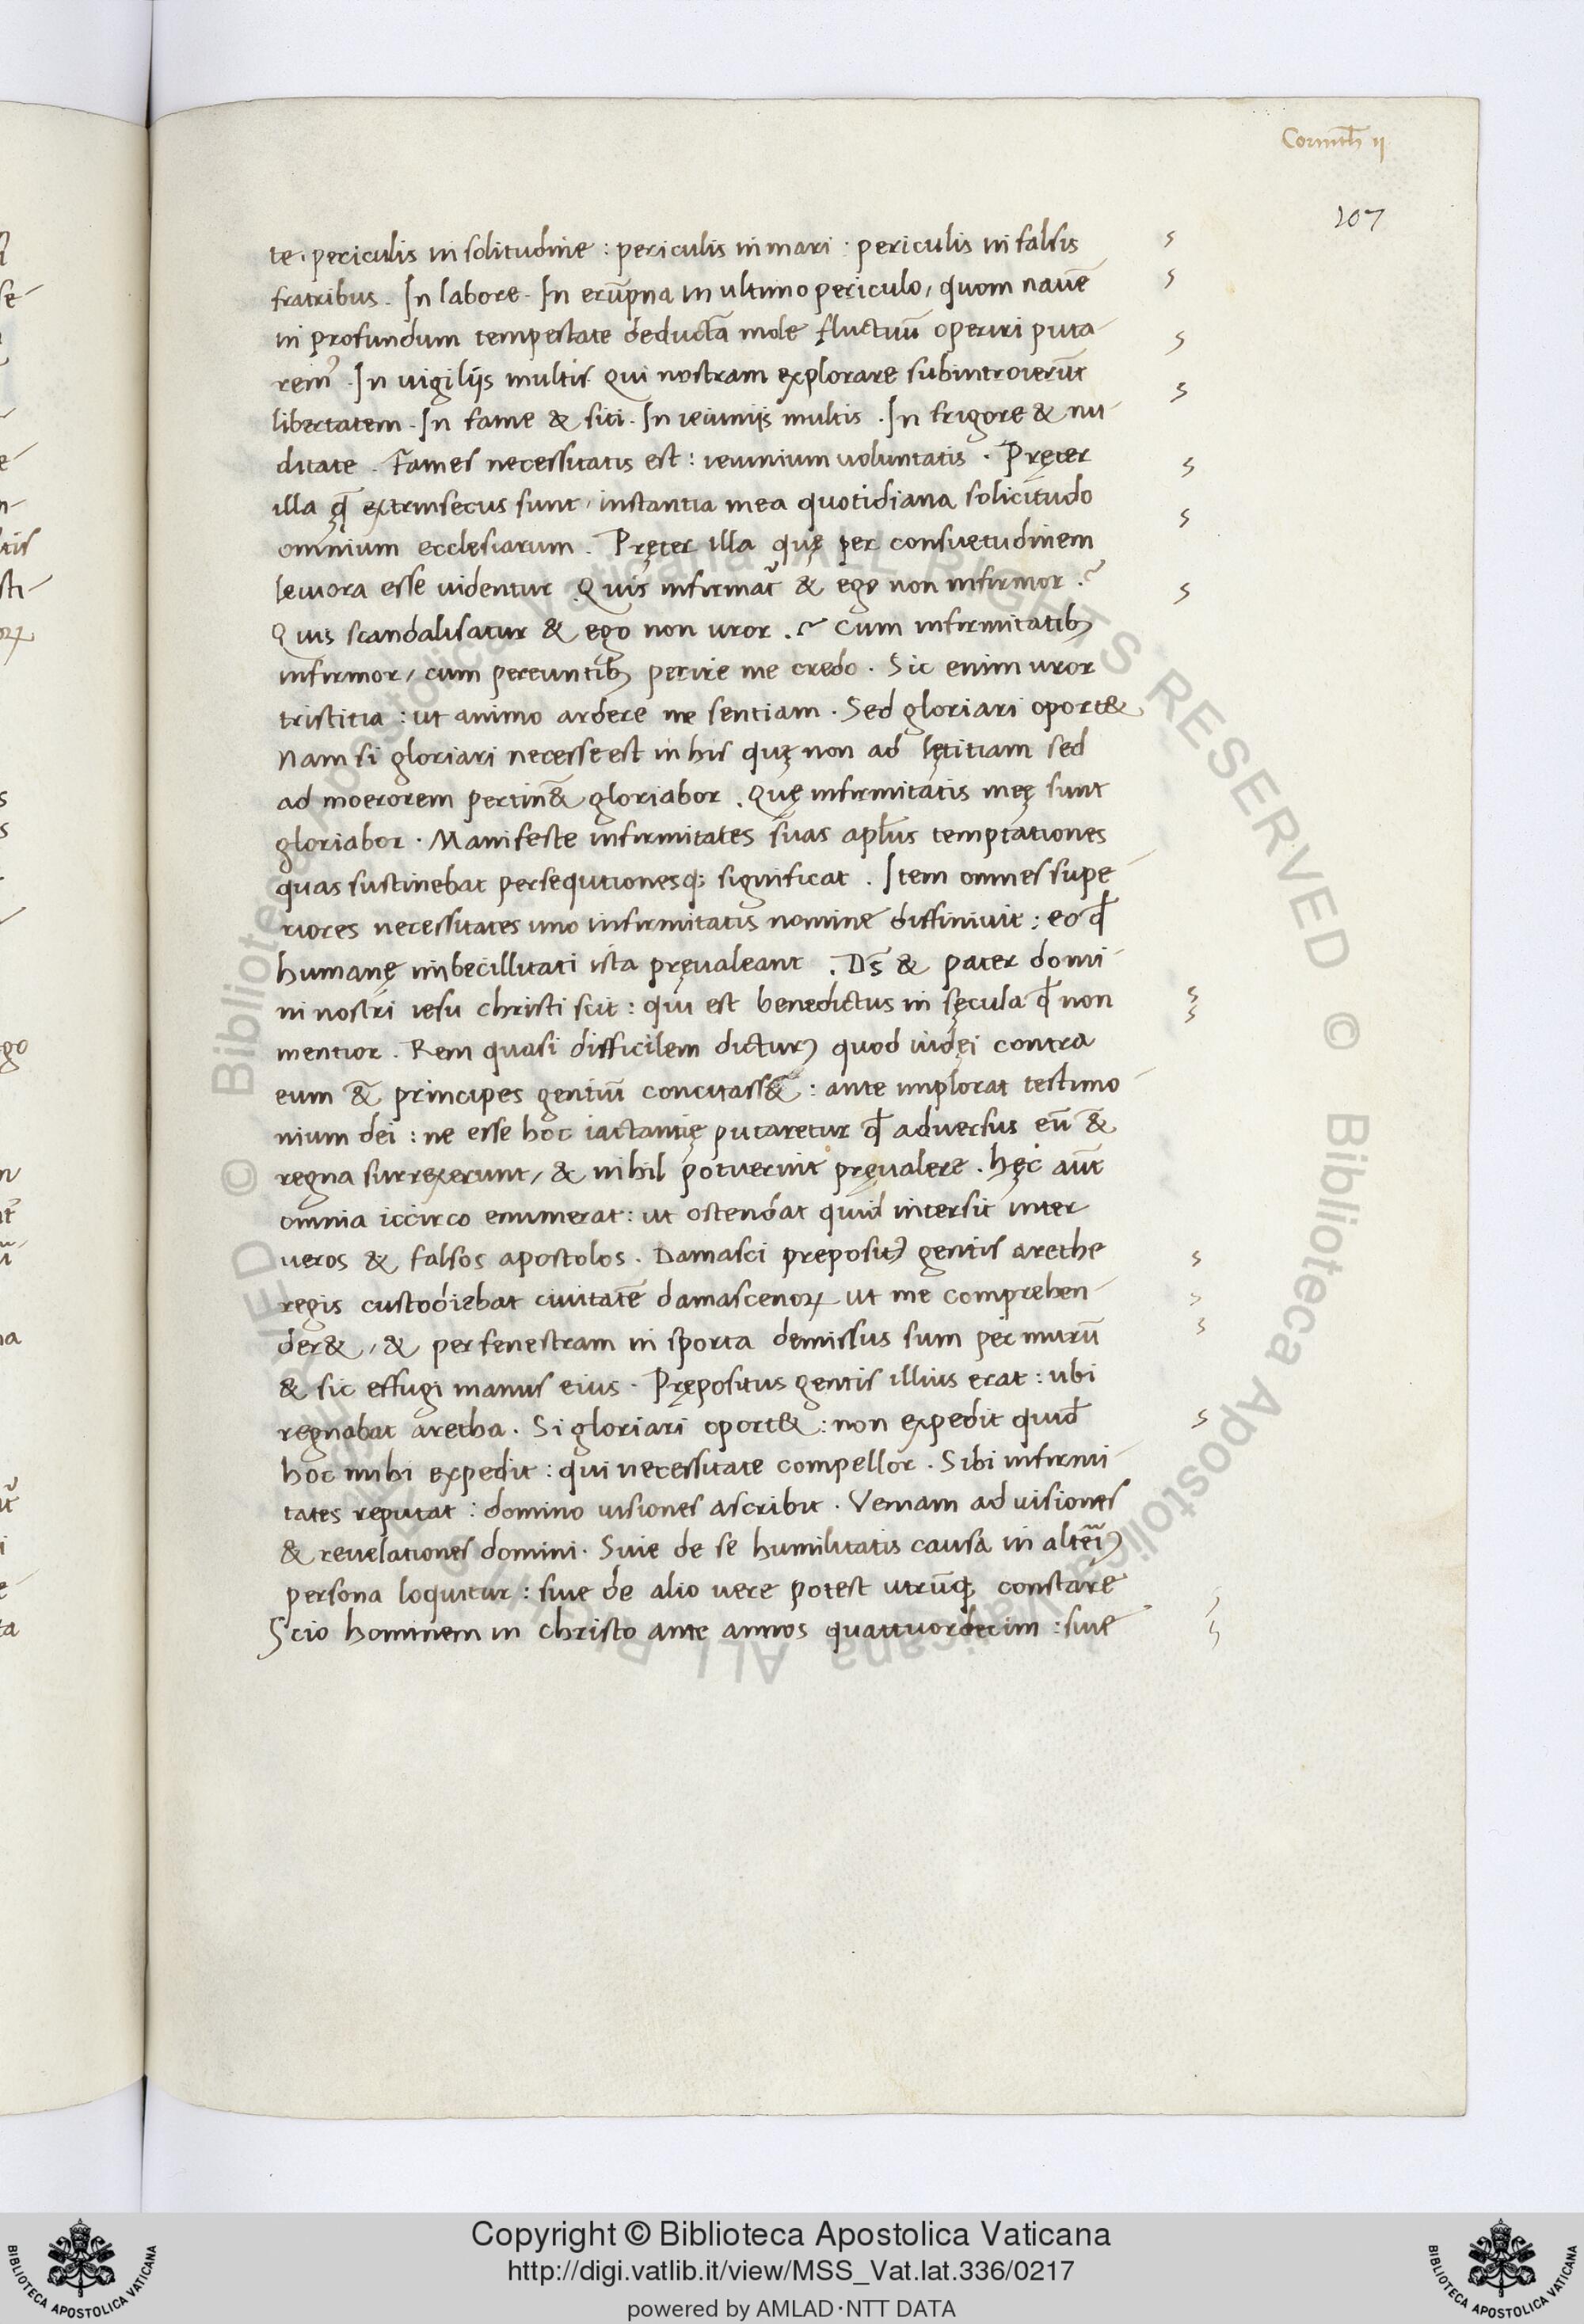 Corinth̄ ii
207
te. periculis in solitudine : periculis in mari : periculis in falsis
fratribus . In labore . In erūpna in ultimo periculo, quom nauē
in profundum tempestate deductā mole fluctuū operiri puta-
rem' . In uigilijs multis qui nostram explorare subintroierūt
libertatem . In fame & siti . In ieiunijs multis . In frigore & nu-
ditate . Fames necessitatis est : ieiunium uoluntatis . Pręter
illa q̄ę extrinsecus sunt, instantia mea quotidiana solicitudo
omnium ecclesiarum . Pręter illa quę per consuetudinem
leuiora esse uidentur . Quis infirmat̃ & ego non infirmor .?
Quis scandalisatur & ego non uror .? Cum infirmitatibꝫ
infirmor, cum pereuntibꝫ perire me credo . Sic enim uror
tristitia : ut animo ardere me sentiam . Sed gloriari oport&
Nam si gloriari necesse est in his quę non ad lętitiam sed
ad moerorem pertin̄& gloriabor . Quę infirmitatis męę sunt
gloriabor . Manifeste infirmitates suas apl̄us temptationes
quas sustinebat persequtionesq; significat . Item omnes supe-
riores necessitates uno infirmitatis nomine diffiniuit : eo ꝙ
humanę imbecillitati ista pręualeant . Ds̄ & pater domi-
ni nostri iesu christi scit : qui est benedictus in sęcula ꝙ non
mentior . Rem quasi difficilem dicturꝰ quod iudęi contra
eum &̄ principes gentiū concitass&̄ : ante implorat testimo-
nium dei : ne esse hoc iactantię putaretur ꝙ aduersus eū &̄
regna surrexerunt, & nihil potuerint pręualere . hęc aūt
omnia iccirco enumerat : ut ostendat quid intersit inter
ueros & falsos apostolos . Damasci preposit' gentis arethe
regis custodiebat ciuitatē damascenoꝝ ut me comprehen-
der& , & per fenestram in sporta demissus sum per murū
& sic effugi manus eius . Prępositus gentis illius erat : ubi
regnabat aretha . Si gloriari oport& : non expedit quid̄
hoc mihi expedit : qui necessitate compellor . Sibi infirmi-
tates reputat : domino uisiones ascribit . Veniam ad uisiones
& reuelationes domini . Siue de se humilitatis causa in alteriꝰ
persona loquitur : siue de alio uere potest utrūq; constare
Scio hominem in christo ante annos quattuordecim : siue
Copyright © Biblioteca Apostolica Vaticana
http://digi.vatlib.it/view/MSS_Vat.lat.336/0217
powered by AMLAD·NTT DATA